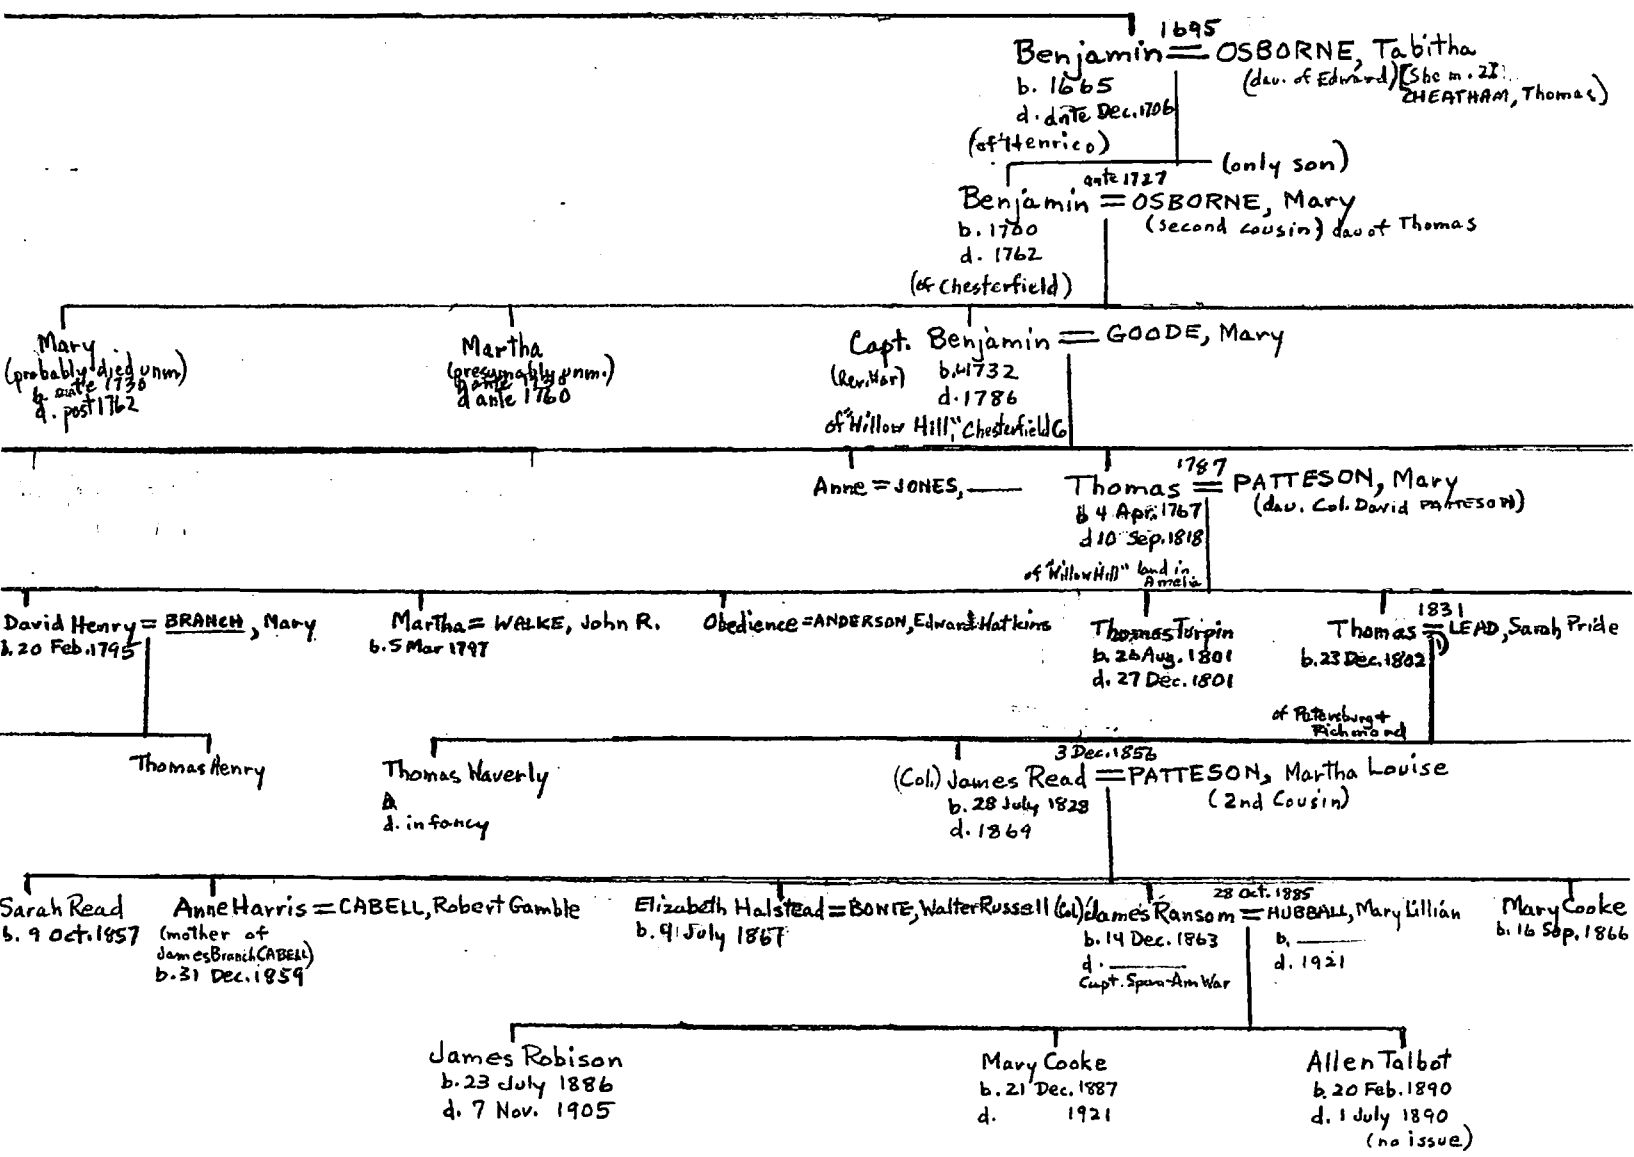 1695
Benjamin = OSBORNE, Tabitha
b. 1665
(dau. of Edward) [She m. 2d
CHEATHAM, Thomas)
d. ante Dec. 1706
(of Henrico)
(only son)
ante 1727
Benjamin = OSBORNE, Mary
b. 1700
(second cousin) dau of Thomas
d. 1762
(of Chesterfield)
Mary
(probably died unm.)
b. ante 1730
d. post 1762
Martha
(presumably unm.)
b ante 1730
d ante 1760
Capt. Benjamin = GOODE, Mary
(Rev. War) b. 1732
d. 1786
of "Willow Hill," Chesterfield Co
Anne = JONES, ——
1787
Thomas = PATTESON, Mary
b 4 Apr. 1767
(dau. Col. David PATTESON)
d 10 Sep. 1818
of "Willow Hill" land in
Amelia
David Henry = BRANCH, Mary
b. 20 Feb. 1795
Martha = WALKE, John R.
b. 5 Mar 1797
Obedience = ANDERSON, Edward Watkins
Thomas Turpin
b. 26 Aug. 1801
d. 27 Dec. 1801
1831
Thomas = LEAD, Sarah Pride
(1)
b. 23 Dec. 1802
of Petersburg +
Richmond
Thomas Henry
Thomas Waverly
b.
d. infancy
3 Dec. 1856
(Col.) James Read = PATTESON, Martha Louise
b. 28 July 1828
(2nd Cousin)
d. 1869
Sarah Read
b. 9 Oct. 1857
Anne Harris = CABELL, Robert Gamble
(mother of
James Branch CABELL)
b. 31 Dec. 1859
Elizabeth Halstead = BONTE, Walter Russell
b. 9 July 1867
28 Oct. 1885
(Col) James Ransom = HUBBALL, Mary Lillian
b. 14 Dec. 1863
b. ——
d. ——
d. 1921
Capt. Span-Am War
Mary Cooke
b. 16 Sep. 1866
James Robison
b. 23 July 1886
d. 7 Nov. 1905
Mary Cooke
b. 21 Dec. 1887
d. 1921
Allen Talbot
b. 20 Feb. 1890
d. 1 July 1890
(no issue)